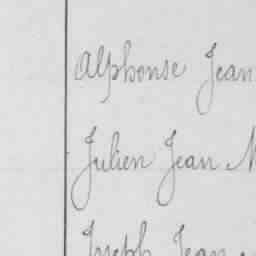 Alphonse Jean
Julien Jean
Joseph Jean